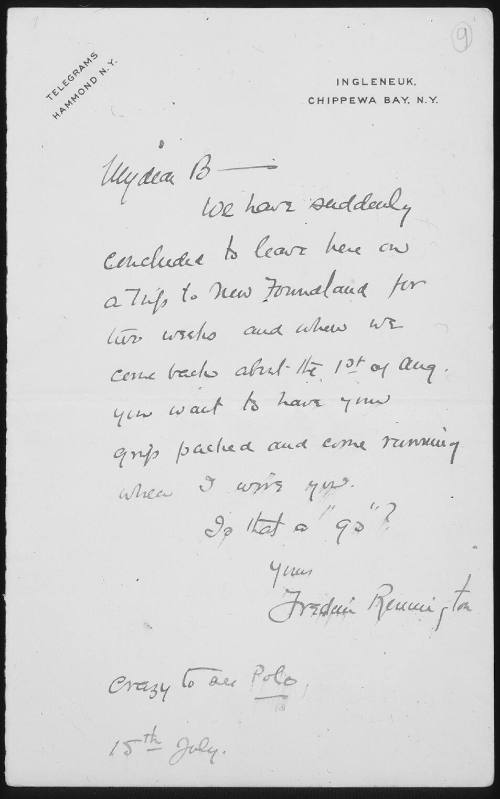 9
TELEGRAMS
HAMMOND N.Y.
INGLENEUK,
CHIPPEWA BAY, N.Y.
My dear B—
We have suddenly
concluded to leave here on
a trip to New Foundland for
two weeks and when we
come back about the 1st of Aug.
you want to have your
grip packed and come running
when I wire you.
Is that a "go"?
Yours
Frederic Remington
Crazy to see Polo.
15th July.